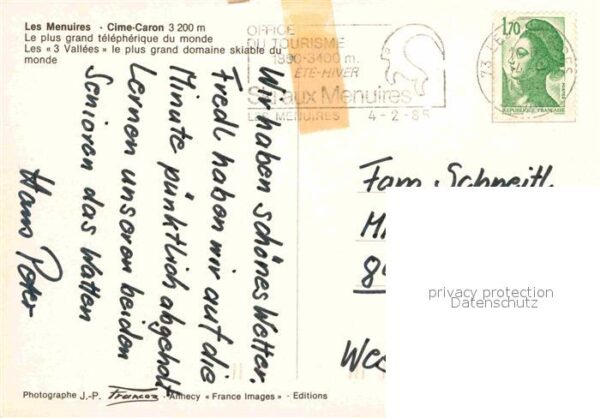 Les Menuires - Cime-Caron 3 200 m
Le plus grand téléphérique du monde
Les « 3 Vallées » le plus grand domaine skiable du
monde
OFFICE
DU TOURISME
1850-3400 m.
ETE-HIVER
Ski aux Menuires
LES MENUIRES 4-2-85
1,70
REPUBLIQUE FRANÇAISE
Wir haben schönes Wetter.
Fredl haben wir auf die
Minute pünktlich abgeholt
Lernen unseren beiden
Senioren das Watten
Hans Peter
Fam. Schneitl
8
privacy protection
Datenschutz
Photographe J.-P. Francoz - Annecy « France Images » - Editions